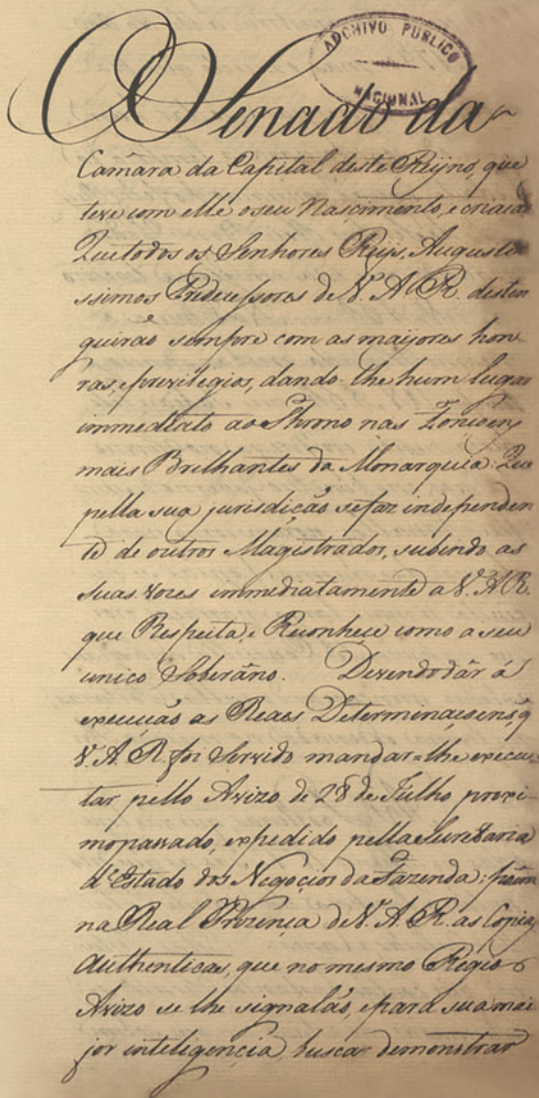 ARCHIVO PUBLICO
NACIONAL
O Senado da
Camâra da Capital deste Reyno, que
teve com elle o seu Nascimento, e criacaõ
Que todos os Senhores Reys, Augusti
ssimos Predecessores de V. A. R. destin
guiraõ sempre com as mayores hon
ras, e previlegios, dando-lhe hum lugar
immediato ao Throno nas Foncoens
mais Brilhantes da Monarquia: Que
pella sua jurisdicaõ se faz independen
te de outros Magistrados, subindo as
suas vozes immediatamente a V. A. R.
que Respeita, e Reconhece como a seu
unico Soberâno. Devendo dâr á
execucaõ as Reaes Determinacoens, q
V. A. R. foi Servido mandar-lhe execu-
tar pello Avizo de 28 de Julho proxi-
mo passado, expedido pella Secretaria
d'Estado dos Negocios da Fazenda: poem
na Real Prezença de V. A. R. as Copias
Authenticas, que no mesmo Regio
Avizo se lhe signalaõ, e para sua mai
jor inteligencia, busca demonstrar